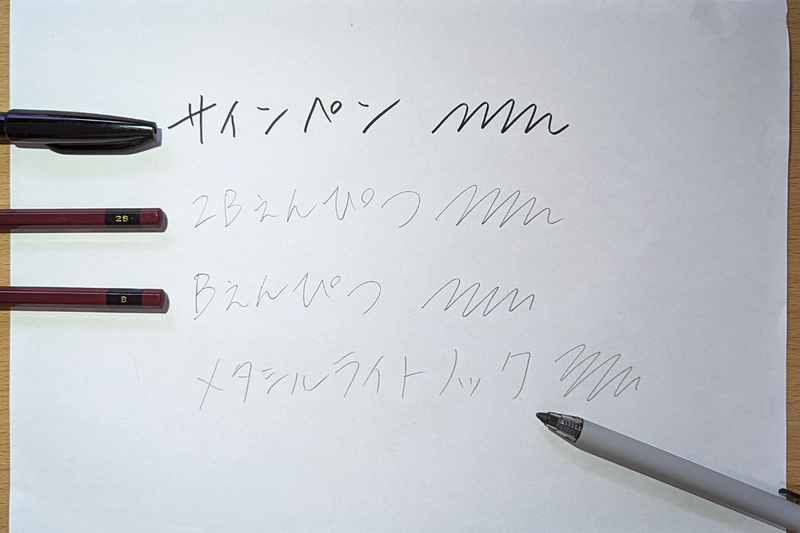 サインペン
2B
2Bえんぴつ
B
Bえんぴつ
メタシルライトノック